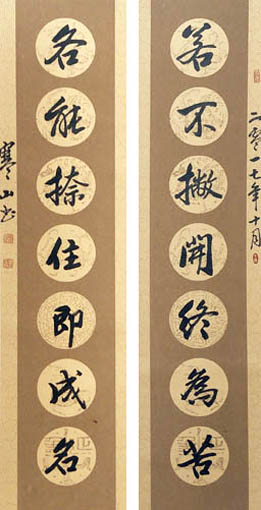 二零一七年十月
若不撇開終為苦
各能捺住即成名
寒山书